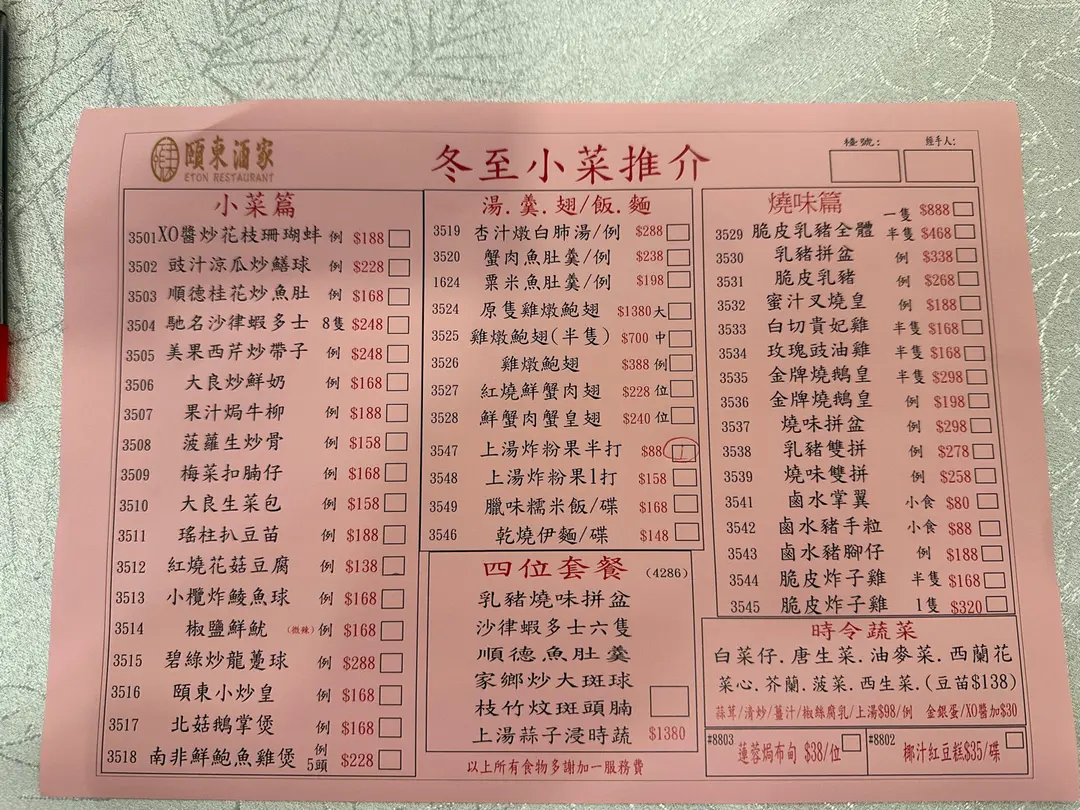 頤東酒家
ETON RESTAURANT
冬至小菜推介
檯號:
經手人:
小菜篇
3501 XO醬炒花枝珊瑚蚌 例 $188
3502 豉汁涼瓜炒鱔球 例 $228
3503 順德桂花炒魚肚 例 $168
3504 馳名沙律蝦多士 8隻 $248
3505 美果西芹炒帶子 例 $248
3506 大良炒鮮奶 例 $168
3507 果汁焗牛柳 例 $188
3508 菠蘿生炒骨 例 $158
3509 梅菜扣腩仔 例 $168
3510 大良生菜包 例 $158
3511 瑤柱扒豆苗 例 $188
3512 紅燒花菇豆腐 例 $138
3513 小欖炸鯪魚球 例 $168
3514 椒鹽鮮魷 (微辣) 例 $168
3515 碧綠炒龍躉球 例 $288
3516 頤東小炒皇 例 $168
3517 北菇鵝掌煲 例 $168
3518 南非鮮鮑魚雞煲 例 5頭 $228
湯.羹.翅/飯.麵
3519 杏汁燉白肺湯/例 $288
3520 蟹肉魚肚羹/例 $238
1624 粟米魚肚羹/例 $198
3524 原隻雞燉鮑翅 $1380 大
3525 雞燉鮑翅(半隻) $700 中
3526 雞燉鮑翅 $388 例
3527 紅燒鮮蟹肉翅 $228 位
3528 鮮蟹肉蟹皇翅 $240 位
3547 上湯炸粉果半打 $88 1
3548 上湯炸粉果1打 $158
3549 臘味糯米飯/碟 $168
3546 乾燒伊麵/碟 $148
四位套餐 (4286)
乳豬燒味拼盆
沙律蝦多士六隻
順德魚肚羹
家鄉炒大斑球
枝竹炆斑頭腩
上湯蒜子浸時蔬 $1380
以上所有食物多謝加一服務費
燒味篇
一隻 $888
3529 脆皮乳豬全體 半隻 $468
3530 乳豬拼盆 例 $338
3531 脆皮乳豬 例 $268
3532 蜜汁叉燒皇 例 $188
3533 白切貴妃雞 半隻 $168
3534 玫瑰豉油雞 半隻 $168
3535 金牌燒鵝皇 半隻 $298
3536 金牌燒鵝皇 例 $198
3537 燒味拼盆 例 $298
3538 乳豬雙拼 例 $278
3539 燒味雙拼 例 $258
3541 鹵水掌翼 小食 $80
3542 鹵水豬手粒 小食 $88
3543 鹵水豬腳仔 例 $188
3544 脆皮炸子雞 半隻 $168
3545 脆皮炸子雞 1隻 $320
時令蔬菜
白菜仔.唐生菜.油麥菜.西蘭花
菜心.芥蘭.菠菜.西生菜.(豆苗$138)
蒜茸/清炒/薑汁/椒絲腐乳/上湯$98/例 金銀蛋/XO醬加$30
#8803 蓮蓉焗布甸 $38/位
#8802 椰汁紅豆糕$35/碟